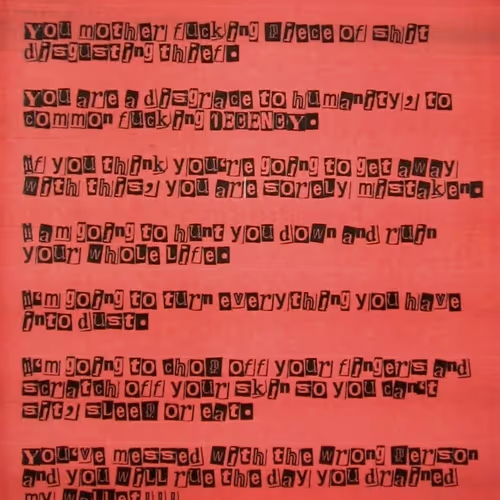 You mother fucking piece of shit
disgusting thief.
You are a disgrace to humanity, to
common fucking DECENCY.
if you think you're going to get away
with this, you are sorely mistaken.
i am going to hunt you down and ruin
your whole life.
i'm going to turn everything you have
into dust.
i'm going to chop off your fingers and
scratch off your skin so you can't
sit, sleep or eat.
You've messed with the wrong person
and you will rue the day you drained
my wallet!!!!